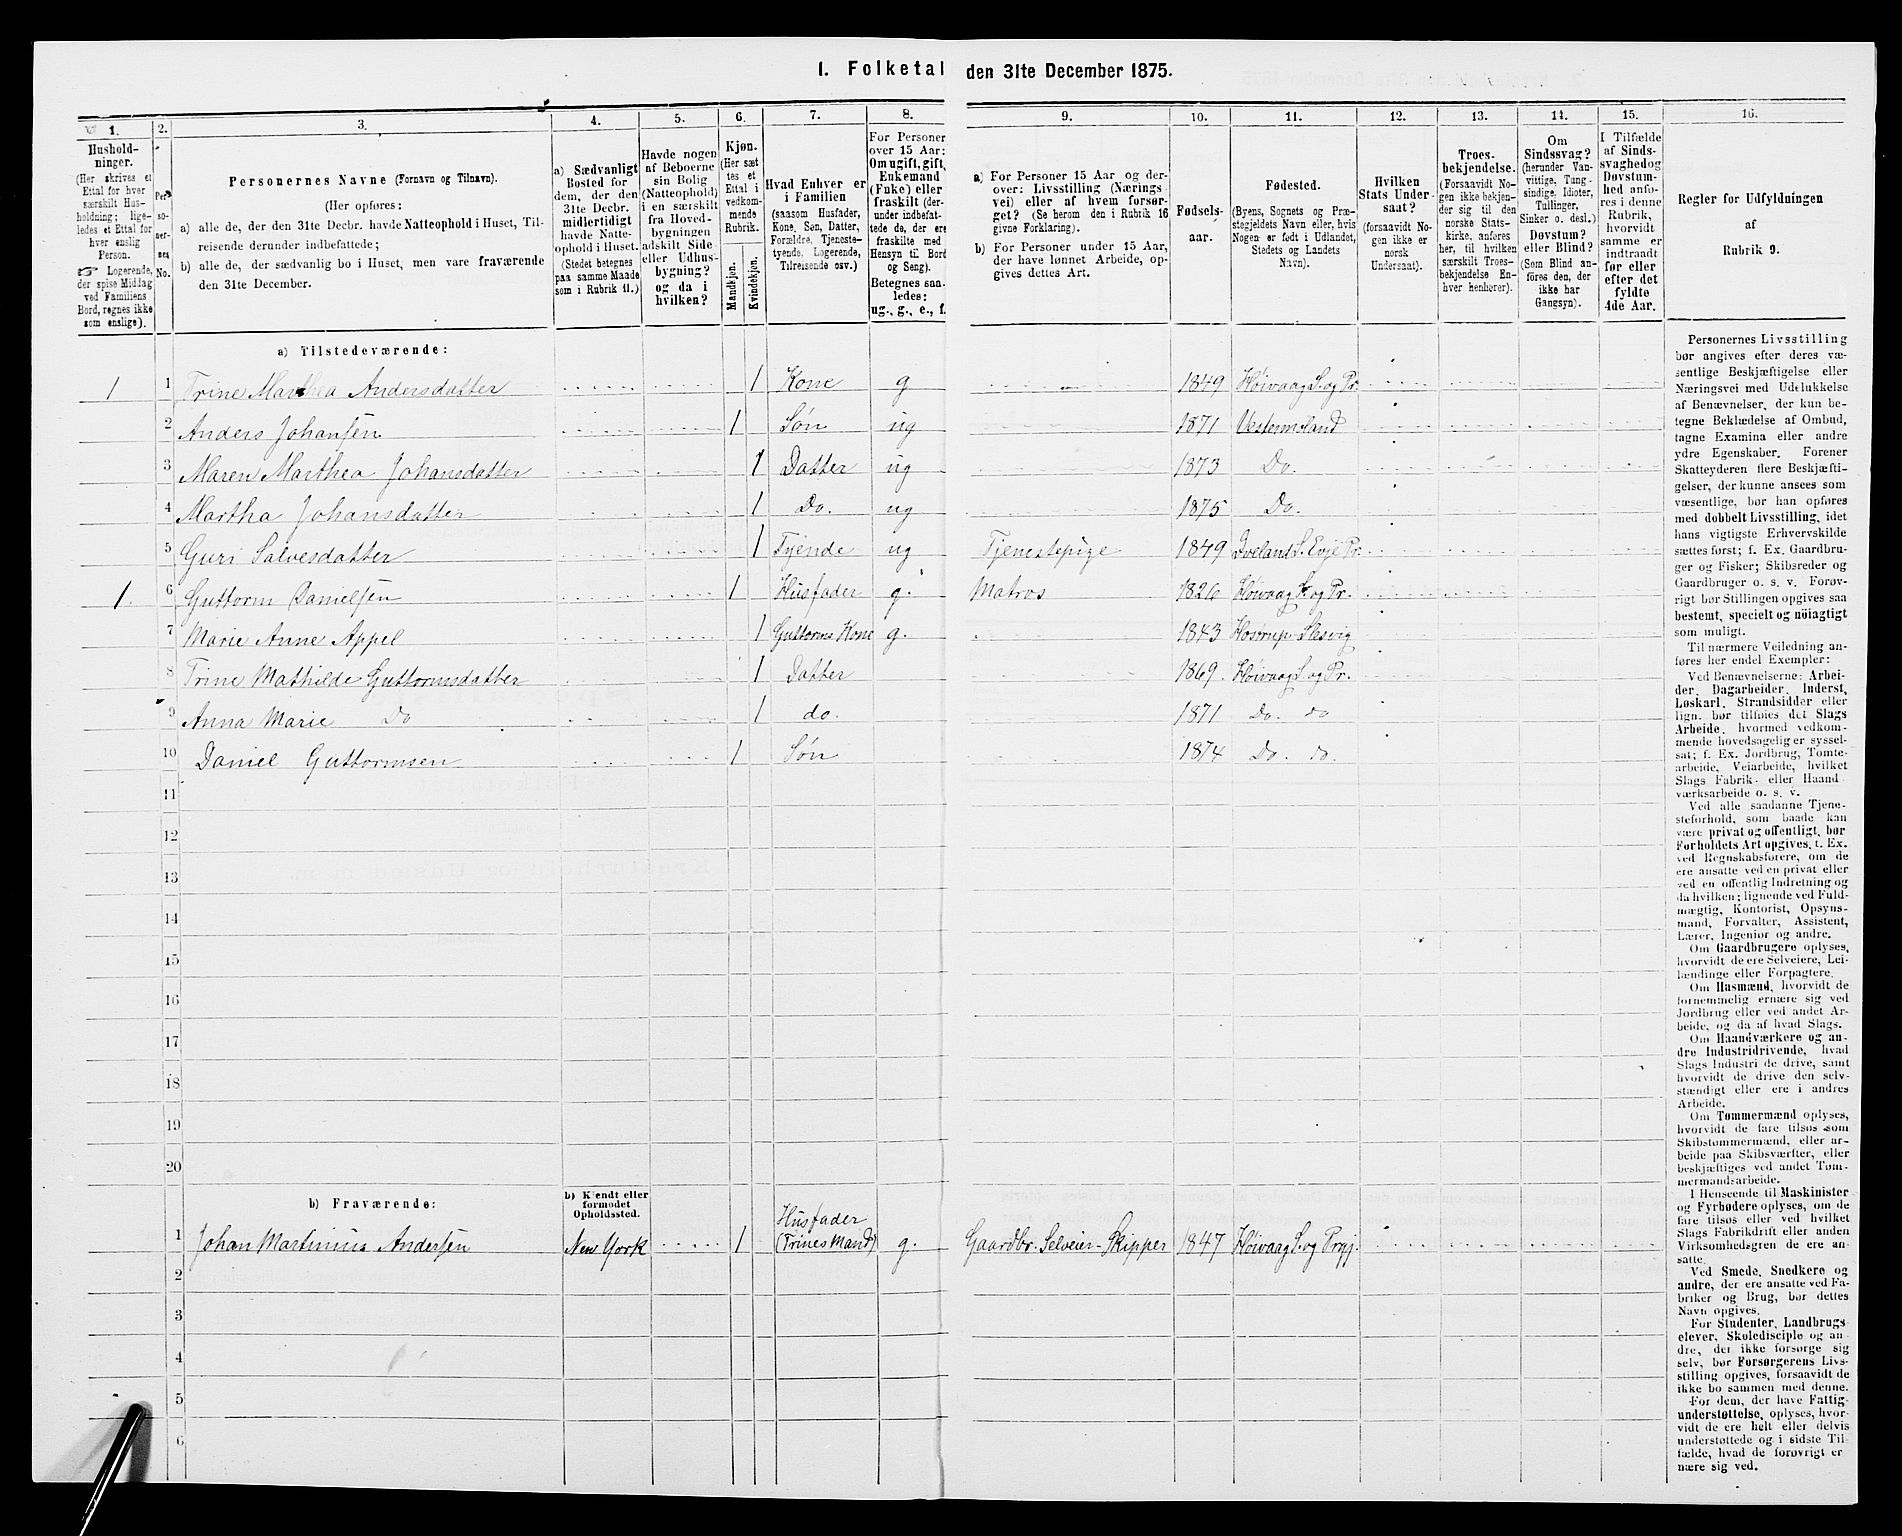 I. Folketal den 31te December 1875.
1.
Hushold-
ninger.
(Her skrives et
Ettal for hver
særskilt Hus-
holdning; lige-
ledes et Ettal for
hver enslig
Person.
☞ Logerende,
der spise Middag
ved Familiens
Bord, regnes ikke
som enslige).
2.
Per-
so-
ner-
nes
No.
3.
Personernes Navne (Fornavn og Tilnavn).
(Her opføres:
a) alle de, der den 31te Decbr. havde Natteophold i Huset, Til-
reisende derunder indbefattede;
b) alle de, der sædvanlig bo i Huset, men vare fraværende
den 31te December.
4.
a) Sædvanligt
Bosted for
dem, der den
31te Decbr.
midlertidigt
havde Natte-
ophold i Huset.
(Stedet betegnes
paa samme Maade
som i Rubrik 11.)
5.
Havde nogen
af Beboerne
sin Bolig
(Natteophold)
i en særskilt
fra Hoved-
bygningen
adskilt Side-
eller Udhus-
bygning?
og da i
hvilken?
6.
Kjøn.
(Her sæt-
tes et
Ettal i
vedkom-
mende
Rubrik.
Mandkjøn.
Kvindekjøn.
7.
Hvad Enhver er
i Familien
(saasom Husfader,
Kone, Søn, Datter,
Forældre, Tjeneste-
tyende, Logerende,
Tilreisende osv.)
8.
For Personer
over 15 Aar:
Om ugift, gift,
Enkemand
(Enke) eller
fraskilt (der-
under indbefat-
tede de, der ere
fraskilte med
Hensyn til Bord
og Seng).
Betegnes saa-
ledes:
ug., g., e., f.
9.
a) For Personer 15 Aar og der-
over: Livsstilling (Nærings-
vei) eller af hvem forsør-
get? (Se herom den i Rubrik 16
givne Forklaring).
b) For Personer under 15 Aar,
der have lønnet Arbeide, op-
gives dettes Art.
10.
Fødsels-
aar.
11.
Fødested.
(Byens, Sognets og Præ-
stegjeldets Navn eller, hvis
Nogen er født i Udlandet,
Stedets og Landets
Navn).
12.
Hvilken
Stats Under-
saat?
(forsaavidt No-
gen ikke er
norsk
Undersaat).
13.
Troes-
bekjendelse.
(Forsaavidt No-
gen ikke bekjen-
der sig til den
norske Stats-
kirke, anføres
her, til hvilken
særskilt Troes-
bekjendelse En-
hver henhører).
14.
Om
Sindssvag?
(herunder Van-
vittige, Tung-
sindige, Idioter,
Tullinger,
Sinker o. desl.)
Døvstum?
eller Blind?
(Som Blind an-
føres den, der
ikke har
Gangsyn).
15.
I Tilfælde
af Sinds-
svaghed og
Døvstum-
hed anfø-
res i denne
Rubrik,
hvorvidt
samme er
indtraadt
før eller
efter det
fyldte
4de Aar.
16.
Regler for Udfyldningen
af
Rubrik 9.
a) Tilstedeværende:
1 1 Trine Marthea Andersdatter 1 Kone g 1849 Høivaag S. og Pr.
2 Anders Johansen 1 Søn ug 1871 Vestermoland
3 Maren Marthea Johansdatter 1 Datter ug 1873 Do.
4 Martha Johansdatter 1 Do. ug 1875 Do.
5 Guri Salvesdatter 1 Tyende ug Tjenestepige 1849 Iveland S. Evje Pr.
1. 6 Guttorm Danielsen 1 Husfader g. Matros 1826 Høivaag S. og Pr.
7 Marie Anne Appel 1 Guttorms Kone g. 1843 Hostrup Slesvig
8 Trine Mathilde Guttormsdatter 1 Datter 1869. Høivaag S. og Pr.
9 Anna Marie Do 1 do. 1871 Do. do
10 Daniel Guttormsen 1 Søn 1874 Do. do.
11
12
13
14
15
16
17
18
19
20
b) Fraværende:
b) Kjendt eller
formodet
Opholdssted.
1 Johan Martinius Andersen New York 1 Husfader
(Trines Mand) g. Gaardbr. Selveier - Skipper 1847 Høivaag S. og Prgj.
2
3
4
5
6
Personernes Livsstilling
bør angives efter deres væ-
sentlige Beskjæftigelse eller
Næringsvei med Udelukkelse
af Benævnelser, der kun be-
tegne Beklædelse af Ombud,
tagne Examina eller andre
ydre Egenskaber. Forener
Skatteyderen flere Beskjæfti-
gelser, der kunne ansees som
væsentlige, bør han opføres
med dobbelt Livsstilling, idet
hans vigtigste Erhvervskilde
sættes først; f. Ex. Gaardbru-
ger og Fisker; Skibsreder og
Gaardbruger o. s. v. Forøv-
rigt bør Stillingen opgives saa
bestemt, specielt og nöiagtigt
som muligt.
Til nærmere Veiledning an-
føres her endel Exempler:
Ved Benævnelserne: Arbei-
der, Dagarbeider, Inderst,
Løskarl, Strandsidder eller
lign. bør tilføies det Slags
Arbeide, hvormed vedkom-
mende hovedsagelig er syssel-
sat; f. Ex. Jordbrug, Tomte-
arbeide, Veiarbeide, hvilket
Slags Fabrik- eller Haand-
værksarbeide o. s. v.
Ved alle saadanne Tjene-
steforhold, som baade kan
være privat og offentligt, bør
Forholdets Art opgives, f. Ex.
ved Regnskabsførere, om de
ere ansatte ved en privat eller
ved en offentlig Indretning og
da hvilken; lignende ved Fuld-
mægtig, Kontorist, Opsyns-
mand, Forvalter, Assistent,
Lærer, Ingeniør og andre.
Om Gaardbrugere oplyses,
hvorvidt de ere Selveiere, Lei-
lændinge eller Forpagtere.
Om Husmænd, hvorvidt de
fornemmelig ernære sig ved
Jordbrug eller ved andet Ar-
beide, og da af hvad Slags.
Om Haandværkere og an-
dre Industridrivende, hvad
Slags Industri de drive, samt
hvorvidt de drive den selv-
stændigt eller ere i andres
Arbeide.
Om Tømmermænd oplyses,
hvorvidt de fare tilsøs som
Skibstømmermænd, eller ar-
beide paa Skibsværfter, eller
beskjæftiges ved andet Tøm-
mermandsarbeide.
I Henseende til Maskinister
og Fyrbødere oplyses, om de
fare tilsøs eller ved hvilket
Slags Fabrikdrift eller anden
Virksomhedsgren de ere an-
satte.
Ved Smede, Snedkere og
andre, der ere ansatte ved Fa-
briker og Brug, bør dettes
Navn opgives.
For Studenter, Landbrugs-
elever, Skoledisciple og an-
dre, der ikke forsørge sig
selv, bør Forsørgerens Livs-
stilling opgives, forsaavidt de
ikke bo sammen med denne.
For dem, der have Fattig-
understøttelse, oplyses, hvor-
vidt de ere helt eller delvis
understøttede og i sidste Til-
fælde, hvad de forøvrigt er-
nære sig ved.